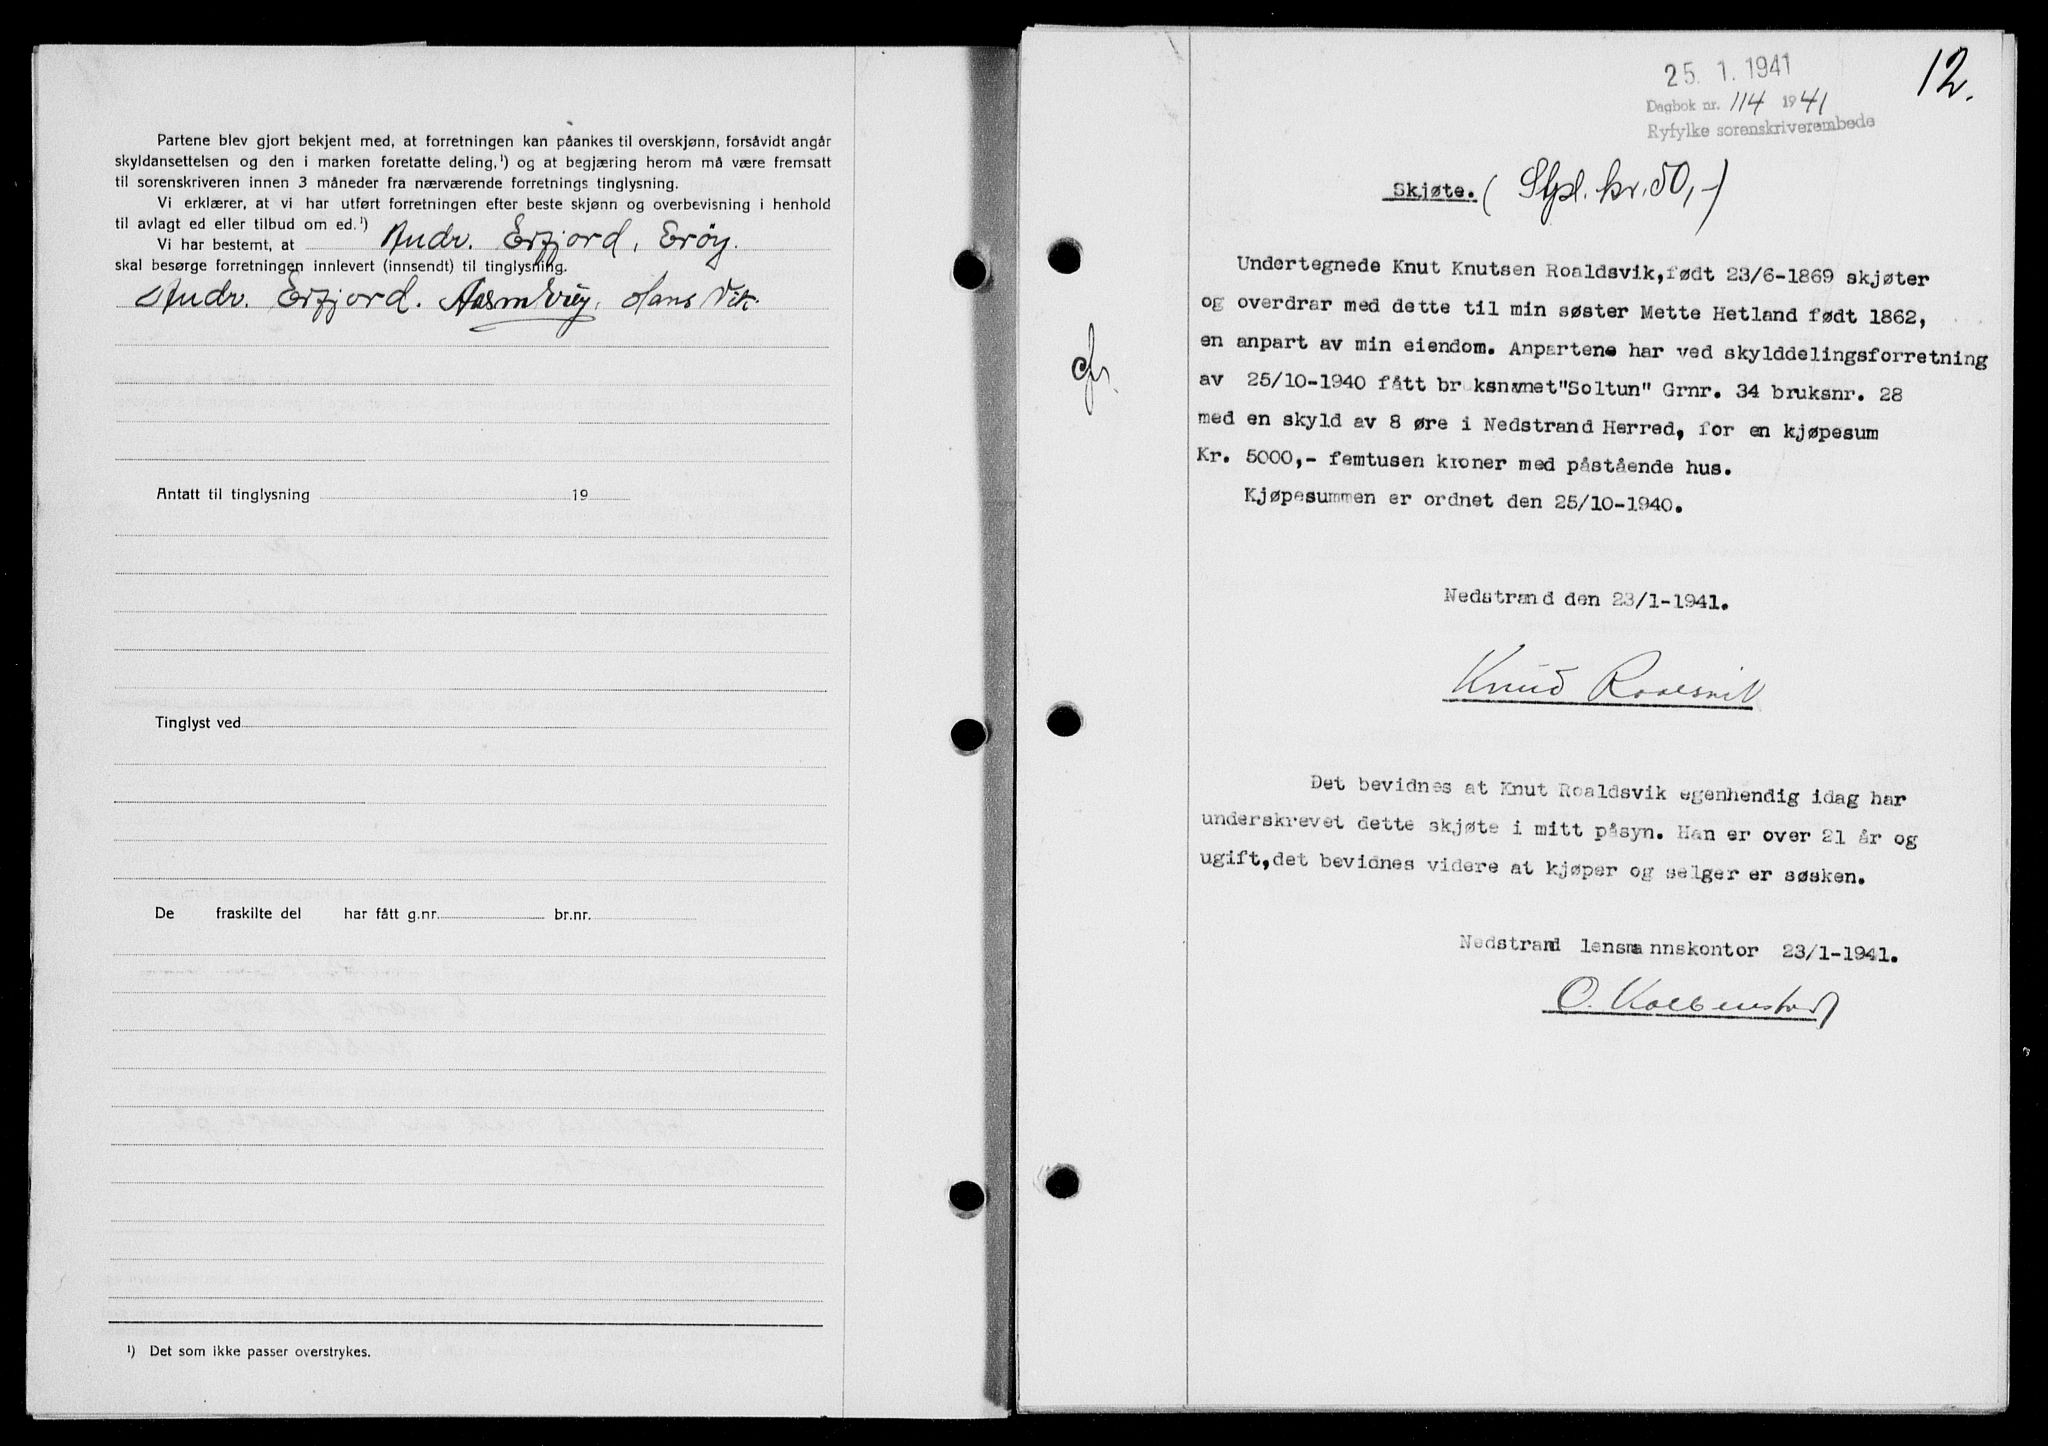 Partene blev gjort bekjent med, at forretningen kan påankes til overskjønn, forsåvidt angår
skyldansettelsen og den i marken foretatte deling,¹) og at begjæring herom må være fremsatt
til sorenskriveren innen 3 måneder fra nærværende forretnings tinglysning.
Vi erklærer, at vi har utført forretningen efter beste skjønn og overbevisning i henhold
til avlagt ed eller tilbud om ed.¹)
Vi har bestemt, at Andr. Erfjord, Erøy.
skal besørge forretningen innlevert (innsendt) til tinglysning.
Andr. Erfjord. Hans Vik.
Antatt til tinglysning 19
Tinglyst ved
De fraskilte del har fått g.nr. br.nr.
¹) Det som ikke passer overstrykes.
12.
25. 1. 1941
Dagbok nr. 114 1941
Ryfylke sorenskriverembede
Skjøte. (Stpl. kr. 50,-)
Undertegnede Knut Knutsen Roaldsvik, født 23/6-1869 skjøter
og overdrar med dette til min søster Mette Hetland født 1862,
en anpart av min eiendom. Anpartene har ved skylddelingsforretning
av 25/10-1940 fått bruksnamet "Soltun" Grnr. 34 bruksnr. 28
med en skyld av 8 øre i Nedstrand Herred, for en kjøpesum
Kr. 5000,- femtusen kroner med påstående hus.
Kjøpesummen er ordnet den 25/10-1940.
Nedstrand den 23/1-1941.
Knud
Det bevidnes at Knut Roaldsvik egenhendig idag har
underskrevet dette skjøte i mitt påsyn. Han er over 21 år og
ugift, det bevidnes videre at kjøper og selger er søsken.
Nedstrand lensmannskontor 23/1-1941.
O. Kolbenstvedt